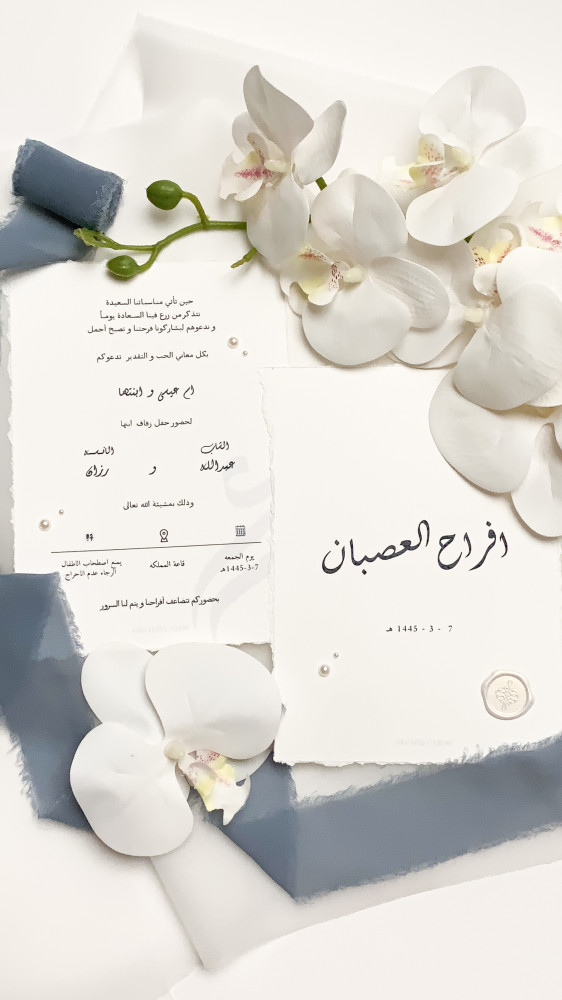 حين تأتي مناسباتنا السعيدة
نتذكر من زرع فينا السعادة يوماً
و ندعوهم ليشاركونا فرحتنا و نصبح أجمل
بكل معاني الحب و التقدير ندعوكم
ام عيسى و ابنتها
لحضور حفل زفاف ابنها
الشاب
عبدالله
و
الآنسة
رزان
وذلك بمشيئة الله تعالى
يوم الجمعه
1445-3-7هـ
قاعة المملكه
يمنع اصطحاب الاطفال
الرجاء عدم الاحراج
بحضوركم تتضاعف أفراحنا و يتم لنا السرور
افراح العصبان
7 - 3 - 1445 هـ